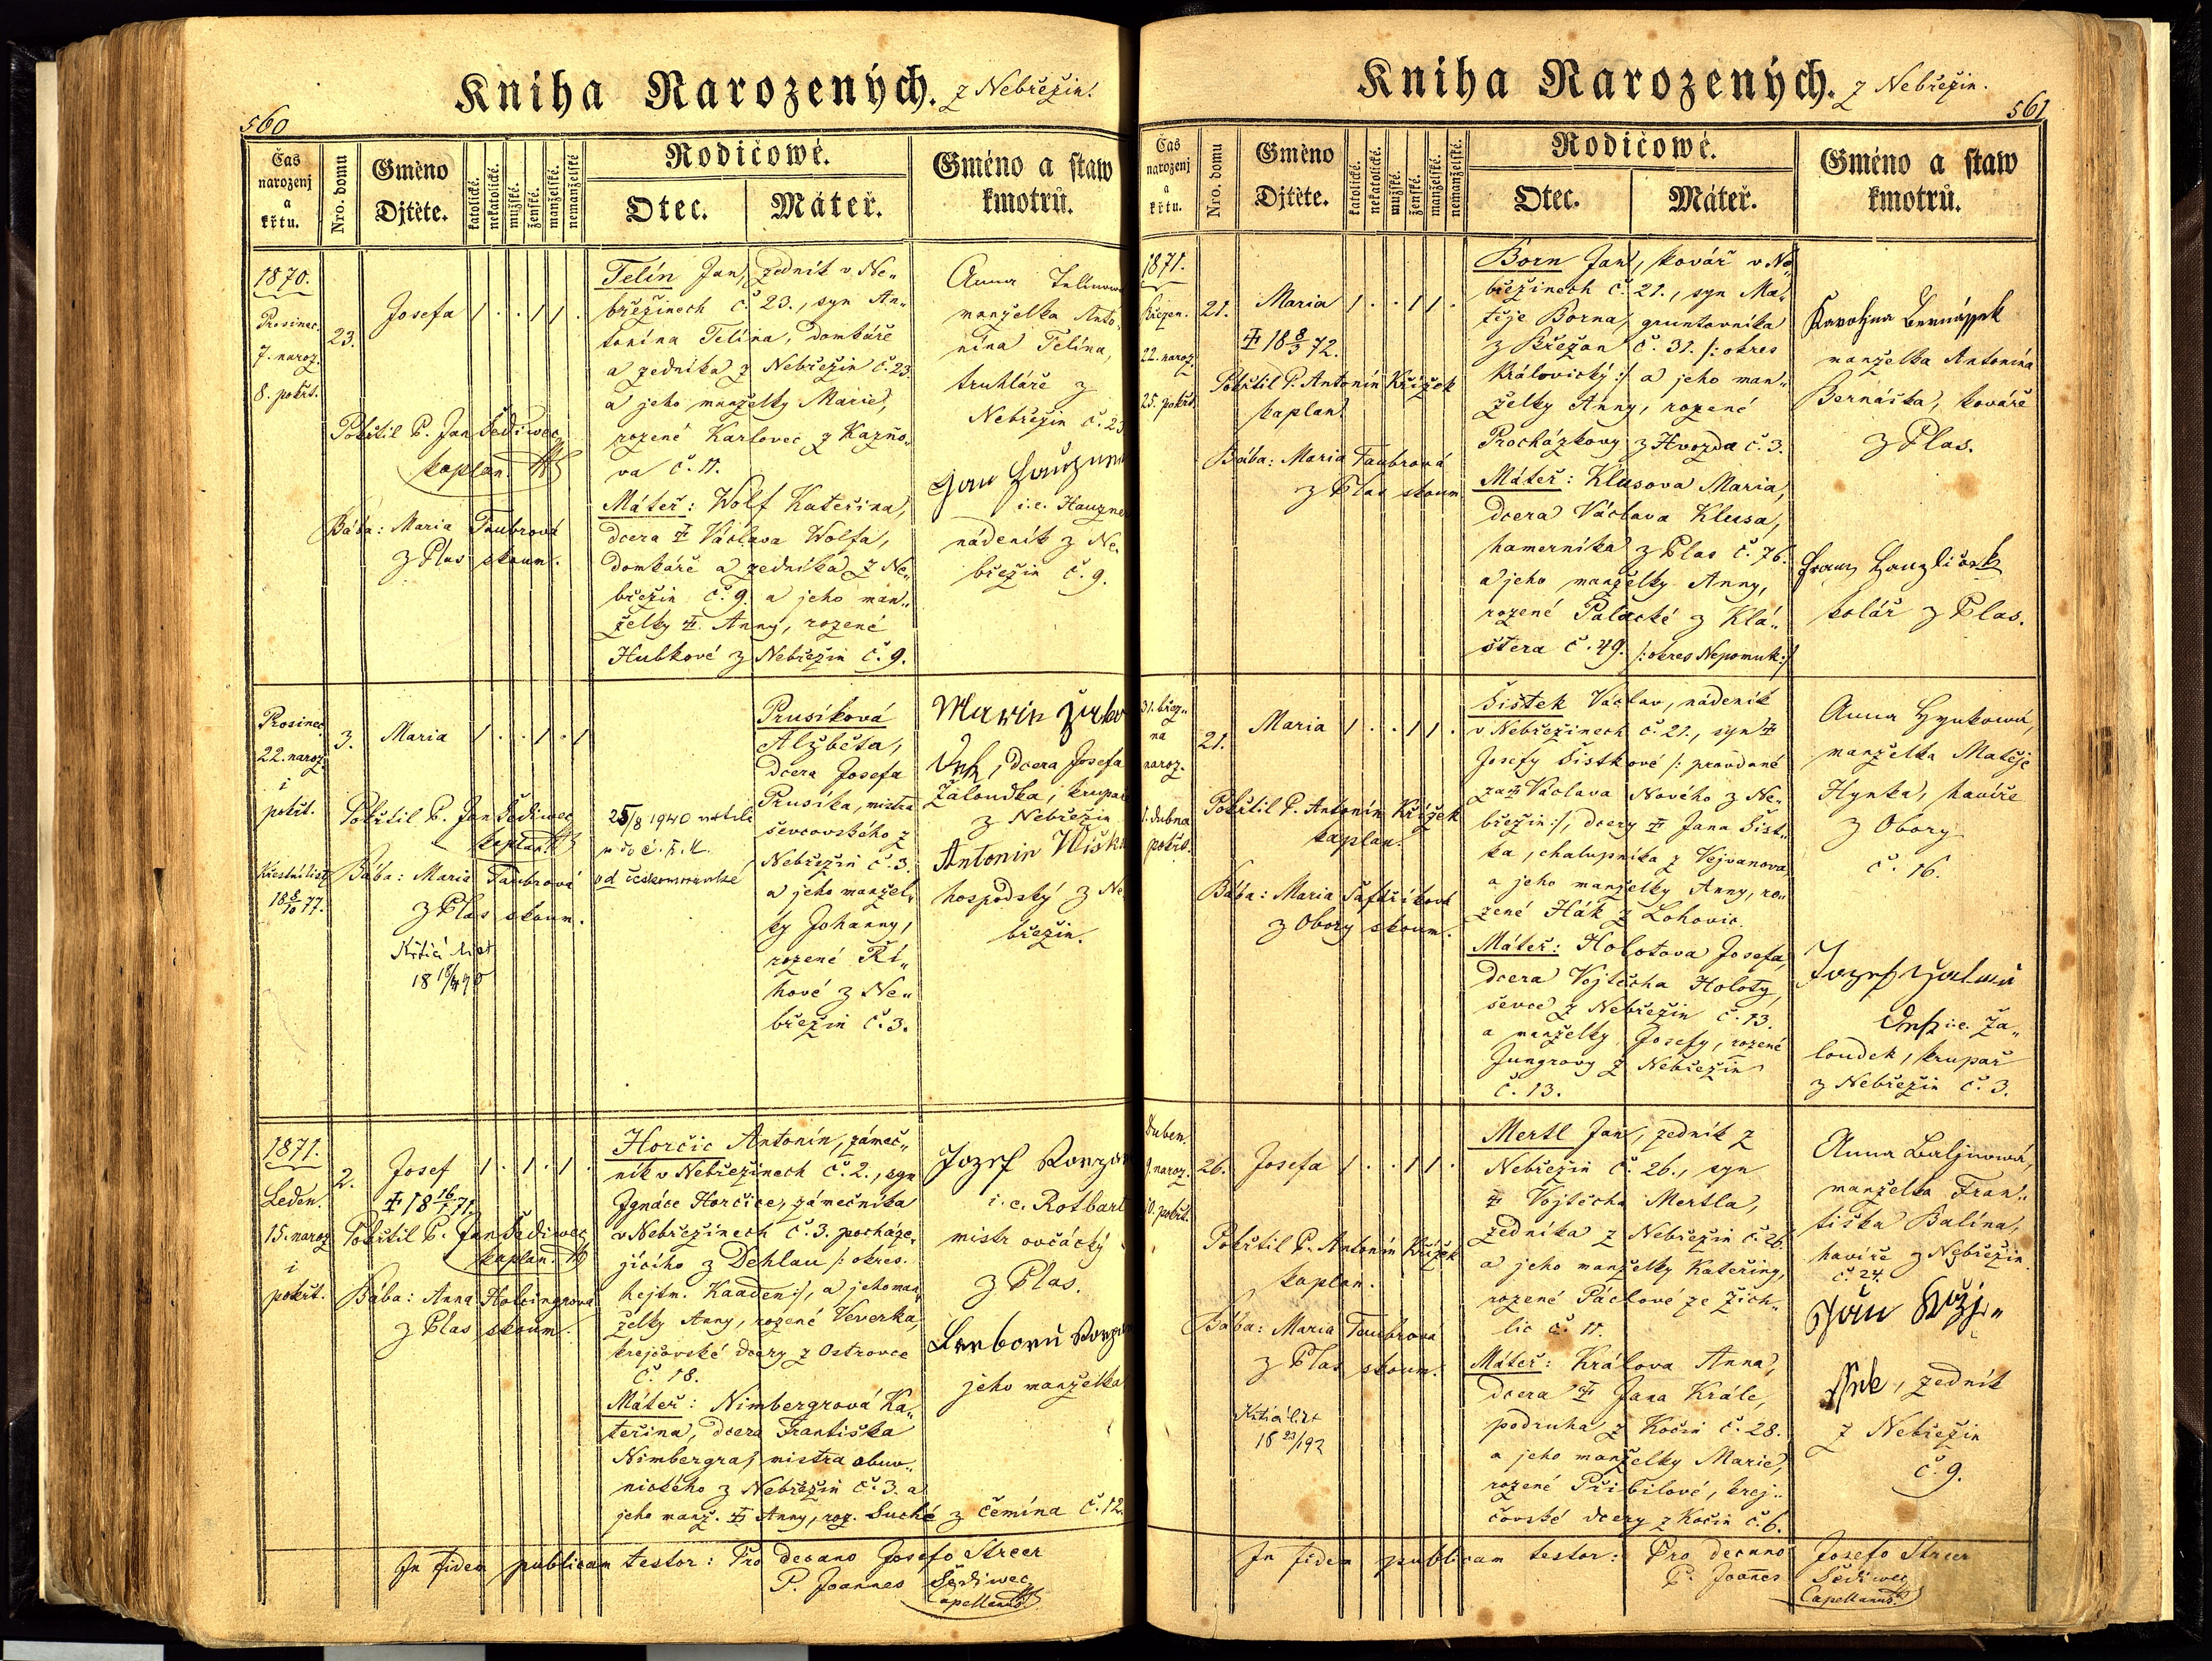 Kniha Narozených. z Nebřežin.
560
Čas narozenj a křtu.
Nro. domu
Gméno Djtěte.
katolické.
nekatolické.
mužské.
ženské.
manželské.
nemanželské
Rodičowé.
Otec.
Máteř.
Gméno a staw kmotrů.
1870.
Prosinec.
7. naroz.
8. pokřt.
23.
Josefa 1 . . 1 1 .
Pokřtil P. Jan Šediwec,
kaplan.
Bába: Maria Taubrová
z Plas zkoum.
Telín Jan, zedník v Ne„
břežinech č. 23., syn An„
tonína Telína, domkáře
a zedníka z Nebřežin č. 23.
a jeho manželky Marie,
rozené Karlovec z Kazňo„
va č. 11.
Máteř: Wolf Kateřina,
dcera Václava Wolfa,
domkáře a zedníka z Ne„
břežin č. 9. a jeho man„
želky Anny, rozené
Hubkové z Nebřežin č. 9.
Anna
manželka Anto„
nína Telína,
truhláře z
Nebřežin č. 23
Jan
i.e. Hauzne
nádeník z Ne„
břežin č. 9.
Prosinec
22. naroz.
i
pokřt.
Křestní list
18 8/10 77.
3.
Maria 1 . . 1 . 1
Pokřtil P. Jan Šediwec
kaplan.
Bába: Maria Taubrová
z Plas zkoum.
Křticí list
25/8 1940
od českomoravské
Prusíková
Alžběta,
dcera Josefa
Prusíka, mistra
ševcovského z
Nebřežin č. 3.
a jeho manžel„
ky Johanny,
rozené Ří„
hové z Ne„
břežin č. 3.
Marie
dcera Josefa
Žaloudka, krupaře
z Nebřežin
Antonin
hospodský z Ne„
břežin.
1871.
Leden.
15. naroz.
i
pokřt.
2.
Josef 1 . 1 . 1 .
Pokřtil P. Jan Šediwec
kaplan.
Bába: Anna Holcingrova
z Plas zkoum.
Horčic Antonín, zámeč„
ník v Nebřežinech č. 2., syn
Ignáce Horčice, zámečníka
v Nebřežinech č. 3. pocháze„
jícího z Dehlau /: okres.
hejtm. Kaaden:/, a jeho man„
želky Anny, rozené Veverka,
krejčovské dcery z Ostrovce
č. 18.
Máteř: Nimbergrová Ka„
teřina, dcera Františka
Nimbergra, mistra obuv„
nického z Nebřežin č. 3. a
jeho manž. Anny, roz. Suché z Čemína č. 12.
Jozef
i.e. Rotbart
mistr ovčácký
z Plas.
jeho manželka
In fidem publicam testor: Pro decano Josefo Streer
P. Joannes Šediwec
Capellanus.
Kniha Narozených. z Nebřežin.
561
Čas narozenj a křtu.
Nro. domu
Gméno Djtěte.
katolické.
nekatolické.
mužské.
ženské.
manželské.
nemanželské.
Rodičowé.
Otec.
Máteř.
Gméno a staw kmotrů.
1871.
Březen.
22. naroz.
25. pokřt.
21.
Maria 1 . . 1 1 .
18 8/3 72.
Pokřtil P. Antonín Křížek
kaplan.
Bába: Maria Taubrová
z Plas zkoum.
Born Jan, kovář v Ne„
břežinech č. 21., syn Ma„
těje Borna, gruntovníka
z Břežan č. 31. /: okres
Královický:/ a jeho man„
želky Anny, rozené
Procházkovy z Hvozda č. 3.
Máteř: Klusova Maria,
dcera Václava Klusa,
hamerníka z Plas č. 76.
a jeho manželky Anny,
rozené Palacké z Klá„
štera č. 49. /: okres Nepomuk:/
Karolina Bernášek
manželka Antonína
Bernáška, kováře
z Plas.
Franz
kolář z Plas.
31. břez„
na
naroz.
1. dubna
pokřt.
21.
Maria 1 . . 1 1 .
Pokřtil P. Antonín Křížek
kaplan.
Bába: Maria Šafaříková
z Obory zkoum.
Šístek Václav, nádeník
v Nebřežinech č. 21., syn
Josefy Šístkové /: provdané
za Václava Nového z Ne„
břežin:/, dcery Jana Šíst„
ka, chalupníka z Vejvanova
a jeho manželky Anny, ro„
zené Hák z Lohovic.
Máteř: Holotova Josefa,
dcera Vojtěcha Holoty,
ševce z Nebřežin č. 13.
a manželky Josefy, rozené
Jungrovy z Nebřežin
č. 13.
Anna Hynkowá,
manželka Matěje
Hynka, havíře
z Obory
č. 16.
Jozef
i.e. Ža„
loudek, krupař
z Nebřežin č. 3.
Duben.
9. naroz.
10. pokřt.
26.
Josefa 1 . . 1 1 .
Pokřtil P. Antonín Křížek
kaplan.
Bába: Maria Taubrová
z Plas zkoum.
Křticí list
18 23/1 92
Mertl Jan, zedník z
Nebřežin č. 26., syn
Vojtěcha Mertla,
zedníka z Nebřežin č. 26.
a jeho manželky Kateřiny,
rozené Páclové ze Žich„
lic č. 11.
Máteř: Králova Anna,
dcera Jana Krále,
podruha z Kočin č. 28.
a jeho manželky Marie,
rozené Přibilové, krej„
čovské dcery z Kočin č. 6.
Anna
manželka Fran„
tiška Balína,
havíře z Nebřežin
č. 24.
zedník
z Nebřežin
č. 9.
In fidem publicam testor: Pro decano Josefo Streer
P. Joannes Šediwec
Capellanus.